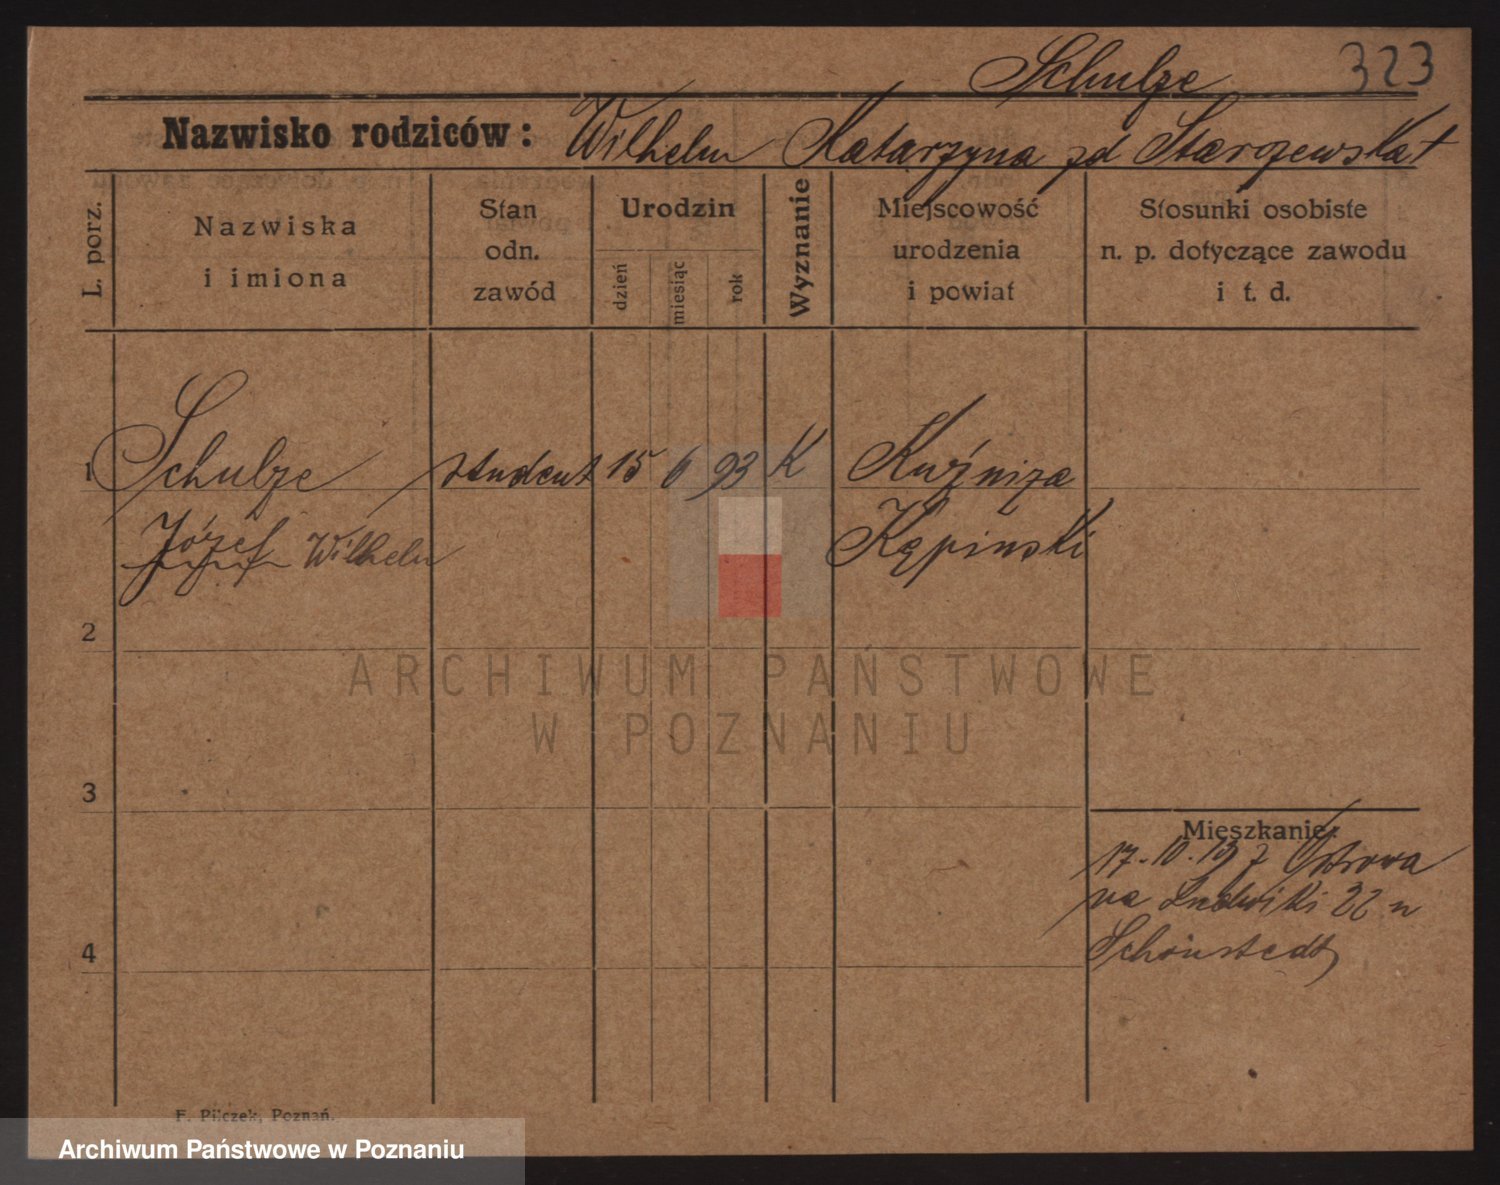 Schulze 323
Nazwisko rodziców: Wilhelm Katarzyna zd
L. porz.
Nazwiska
i imiona
Stan
odn.
zawód
Urodzin
dzień
miesiąc
rok
Wyznanie
Miejscowość
urodzenia
i powiat
Stosunki osobiste
n. p. dotyczące zawodu
i t. d.
1 Schulze student 15 6 93 K Kuźnica
Józef Wilhelm Kępiński
2
3
Mieszkanie:
17. 10. 19 z Ostrowa
na Ludwiki 22 u
Schönstedt
4
ARCHIWUM PAŃSTWOWE
W POZNANIU
F. Pilczek, Poznań.
Archiwum Państwowe w Poznaniu